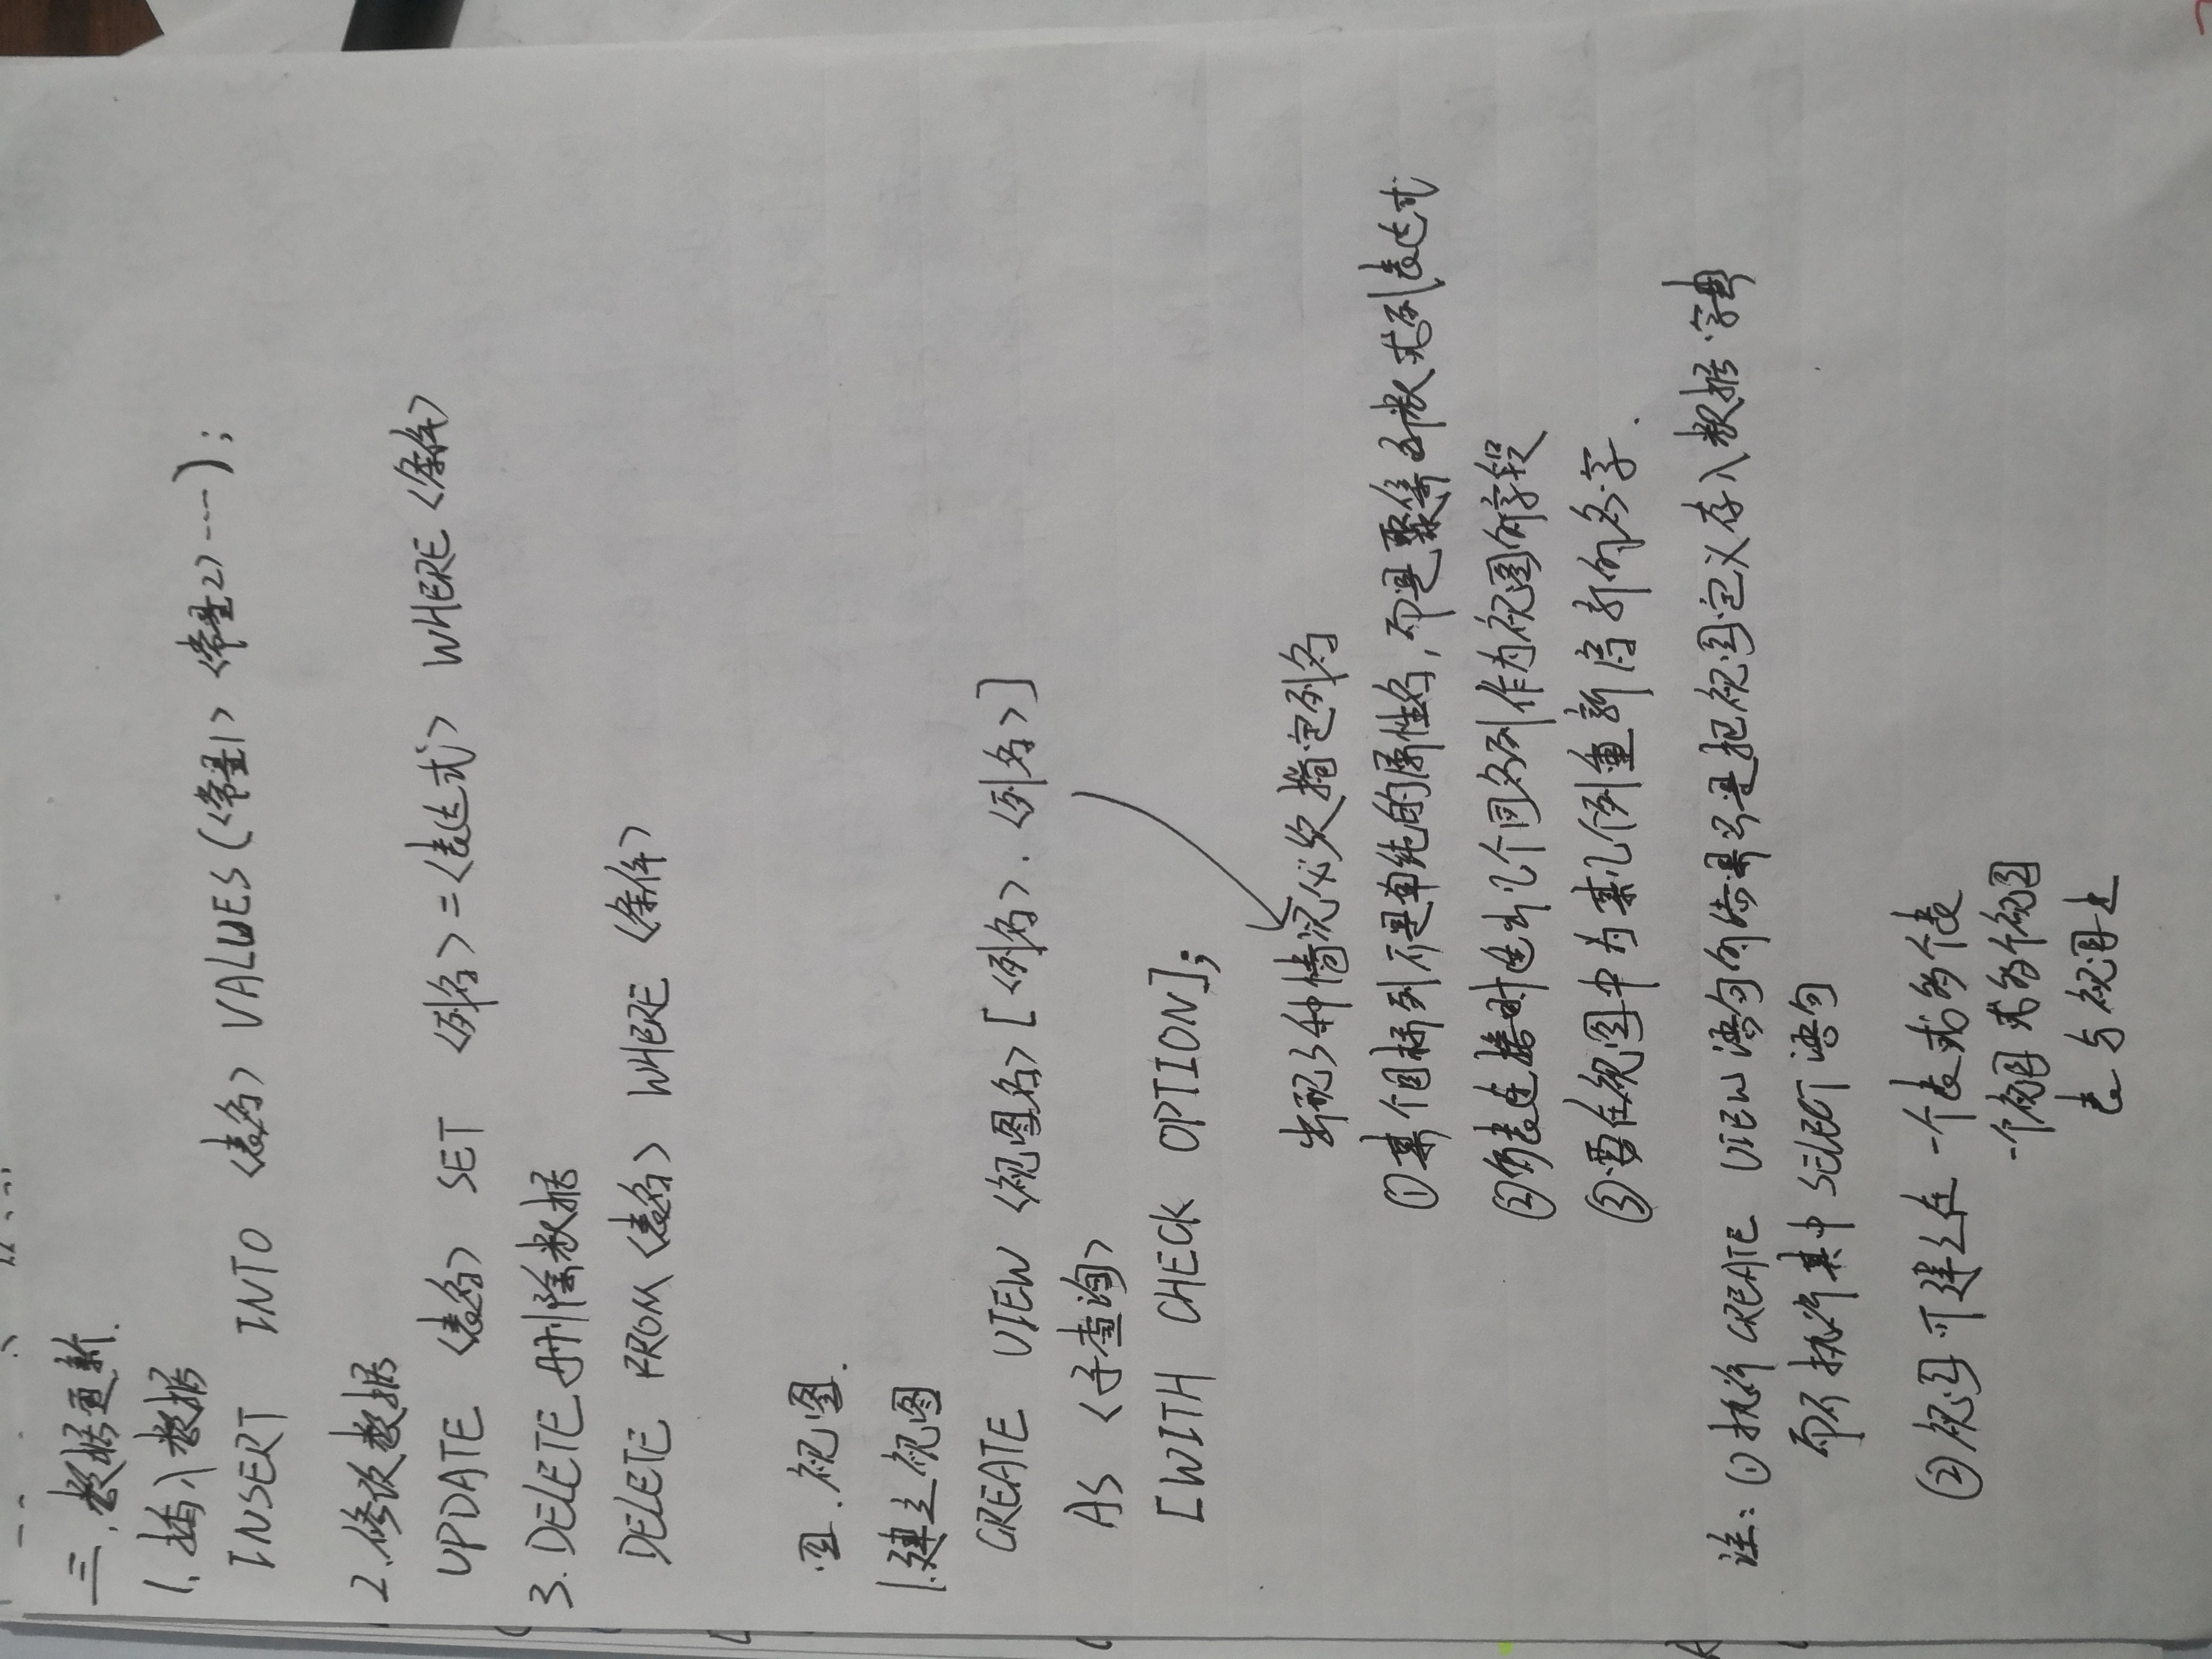 三.数据更新.
1.插入数据
INSERT INTO <表名> VALUES(<常量1> <常量2>----);
2.修改数据
UPDATE <表名> SET <列名>=<表达式> WHERE <条件>
3.DELETE删除数据
DELETE FROM <表名> WHERE <条件>
四.视图.
1.建立视图
CREATE VIEW <视图名>[<列名>.<列名>]
AS <子查询>
[WITH CHECK OPTION];
出现3种情况必须指定列名
①某个目标列不是单纯的属性名,而是聚集函数或列表达式
②多表连接时选出几个同名列作为视图的字段
③要在视图中为某个列重新启新的名字.
注:①执行CREATE VIEW语句的结果是把视图定义存入数据字典
而不执行其中SELECT语句
②视图可建立在 一个表或多个表
一个视图或多个视图
表与视图上